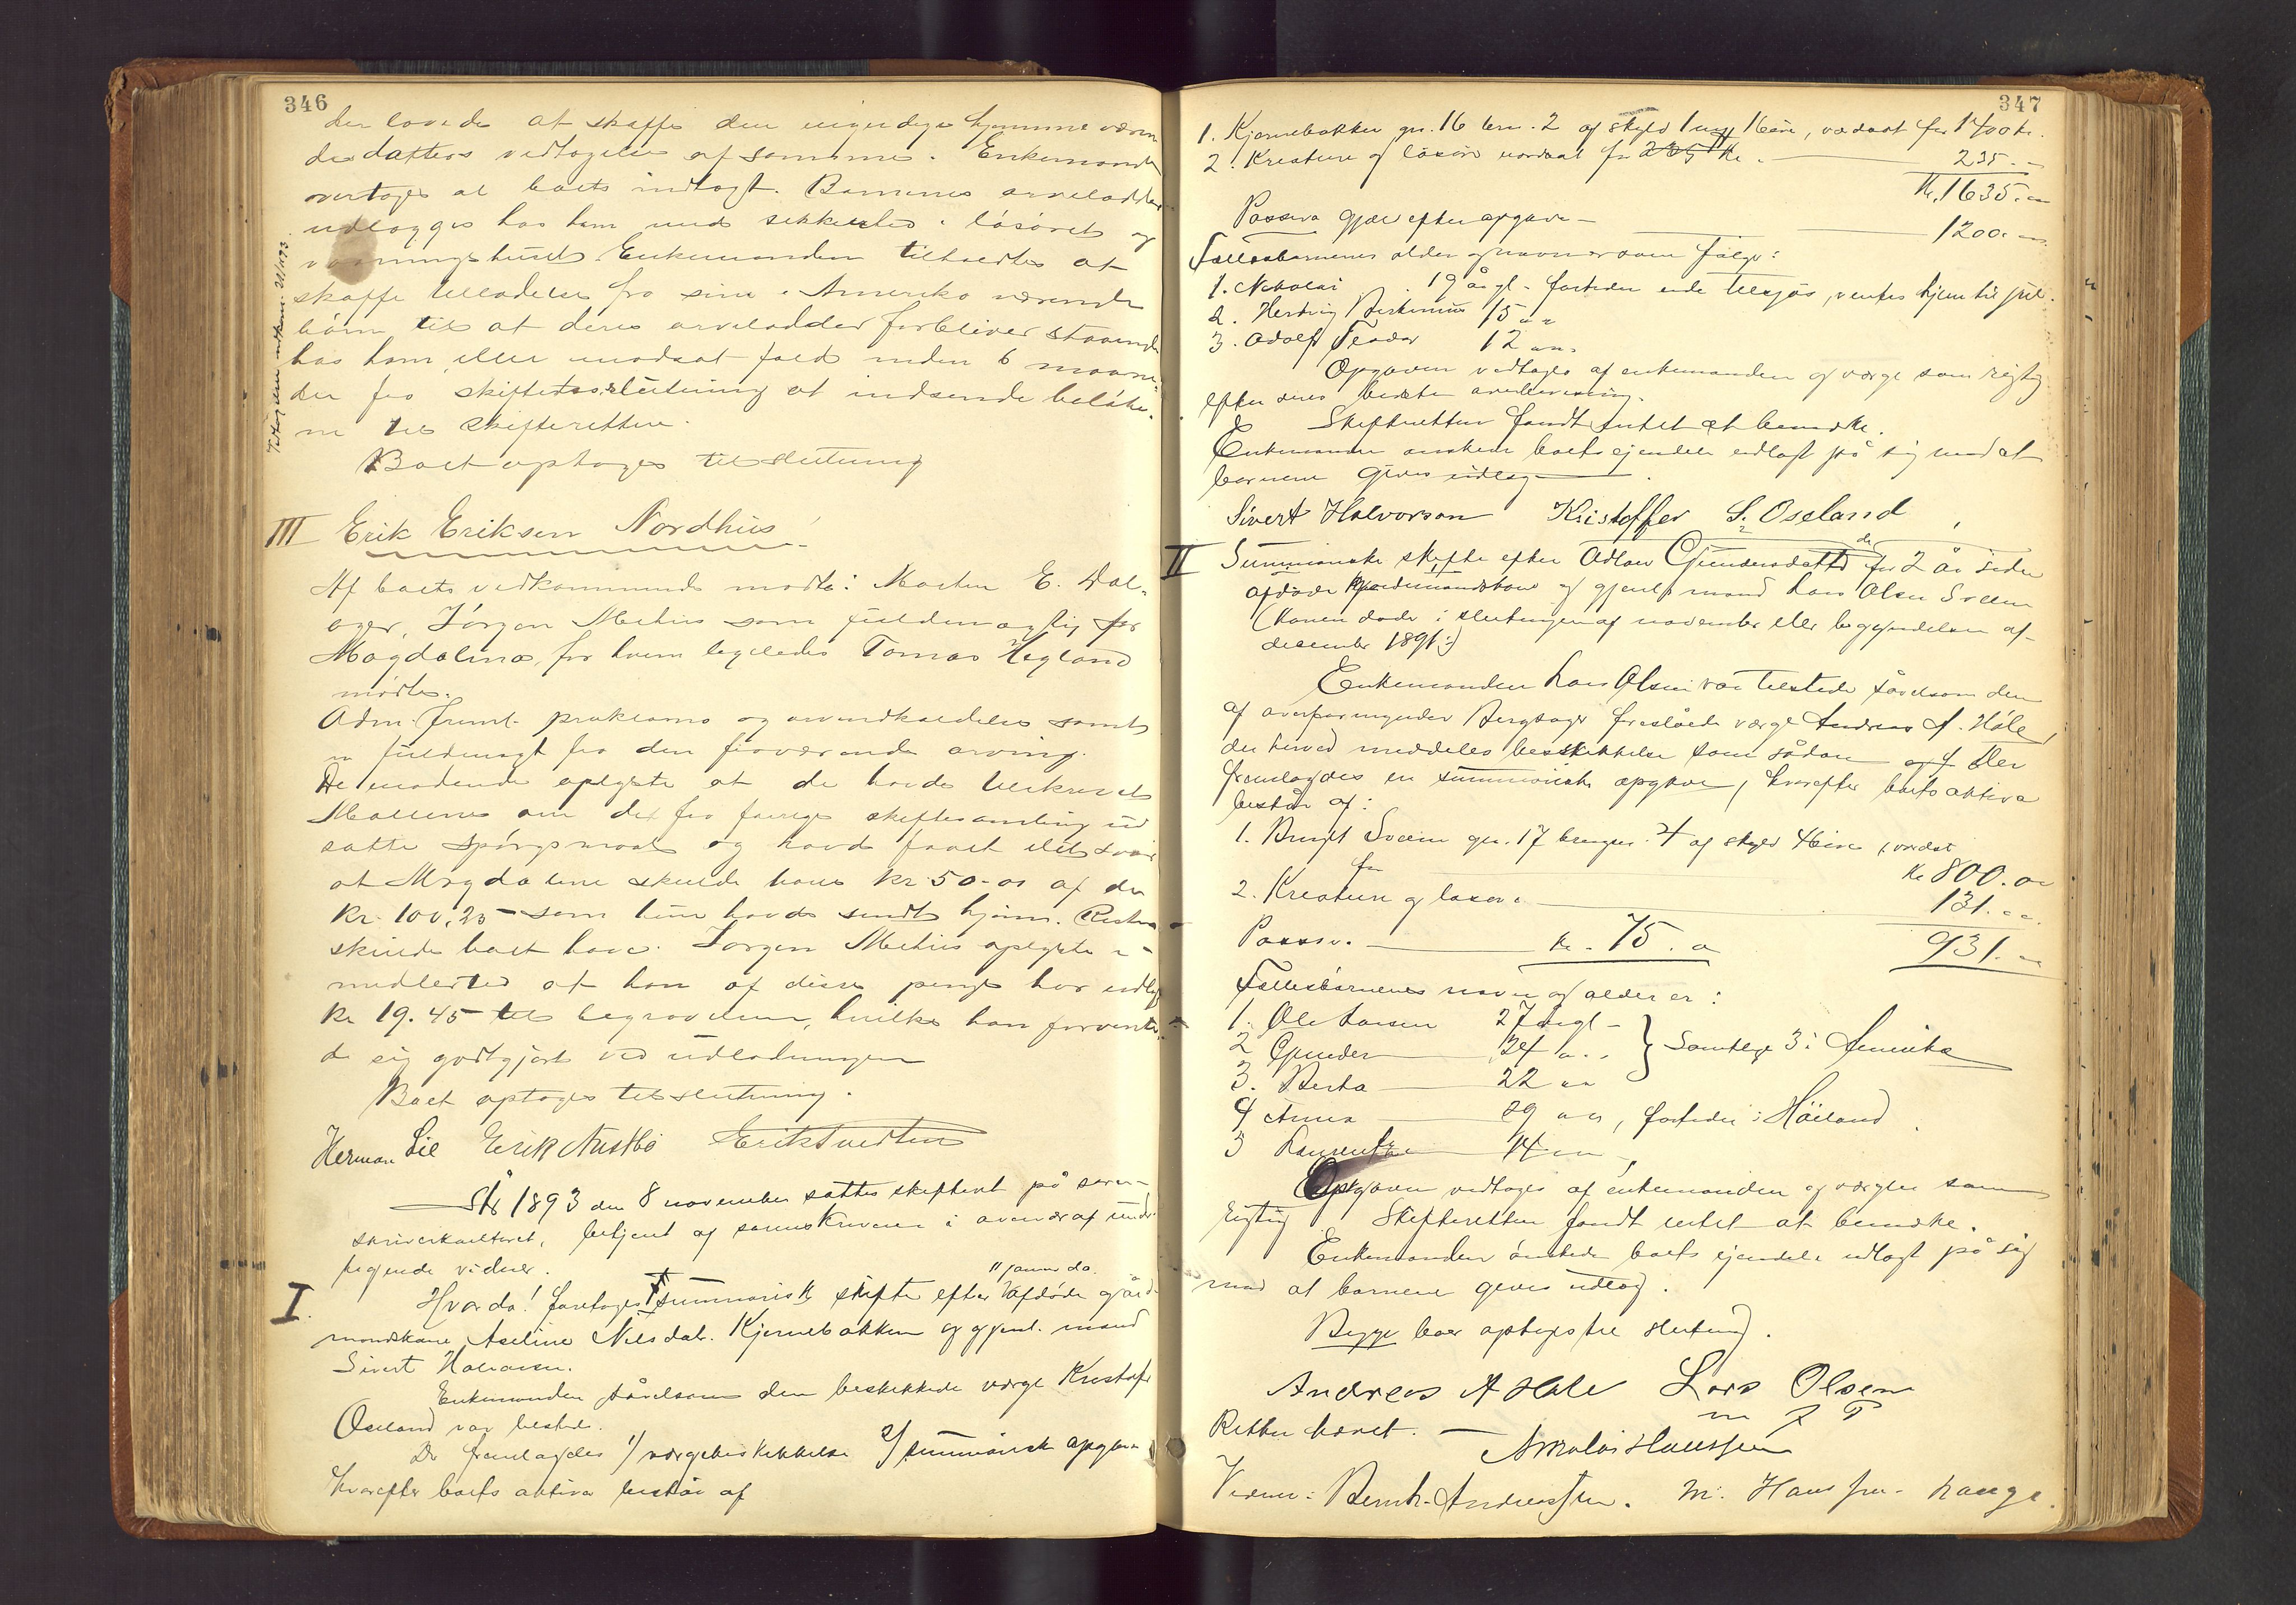 346
der lovede at skaffe den uigendige hjemmeværen
de datters vedtagelse af samme. Enkemanden
overtager al boets indtægt. Barnenes arvelodder
udlægges hos ham mod sikkerhed i løsøret og
vaaningshuset. Enkemanden tilholdtes at
skaffe tilladelse fra sine i Amerika værende
børn til at deres arvelodder forbliver staaende
hos ham, eller modsat fald inden 6 maane-
der fra skiftets slutning at indsende beløbe-
ne til skifteretten.
Boet optages til slutning
III Erik Eriksen Nordhus
Af boets vedkommende mødte: Morten E. Dal-
ager, Jørgen Mehus som fuldmægtig for
Magdalena, for hvem ligeledes Tomas Hegland
mødte.
Adm. freml. proklama og arveindkaldelse samt
fuldmagt fra den fraværende arving.
De mødende oplyste at de havde tilskrevet
om det fra forrige skiftesamling ud
satte spørgsmaal og havde faaet det svar
at Magdalene skulde have kr 50.00 af de
Kr. 100,25 som hun havde sendt hjem. Resten
skulde boet have. Jørgen Mehus oplyste i-
midlertid at han af disse penge har udlagt
Kr 19.45 til begravelsen, hvilke han forvente
de sig godtgjort ved udlodningen
Boet optages til slutning.
Herman Lie Erik Austbø Erik Tvedten
År 1893 den 8 november sattes skifteret på soren-
skriverkontoret, betjent af sorenskriveren i overvær af under
tegnede vidner.
I. Hvorda! foretoges summarisk skifte efter afdøde gård-
11 januar da.
mandskone Aseline Nilsdat. Kjernebakken og gjenl. mand
Sivert Halvorsen.
Enkemanden såvelsom den beskikkede værge Kristoffer
Oseland var tilstede.
Der fremlagdes 1/ værgebeskikkelse 2/ summarisk opgave
hvorefter boets aktiva består af
347
1. Kjernebakken gn. 16 brn. 2 af skyld 1 16 øre, værdsat for 1400 kr.
2. Kreature og løsøre værdsat for 235 Kr. 235.-
Kr. 1635.-
Passiva gjæld efter opgave - 1200.
Fællesbørnenes alder og navne er som følger:
1. Nikolai 19 år gl. fortiden ude tilsjøs, ventes hjem til jul.
2. Hertvig 15
3. Adolf Teodor 12
Opgaven vedtages af enkemanden og værge som rigtig
efter deres bedste overbevisning.
Skifteretten fandt intet at bemærke.
Enkemanden ønskede boets ejendele udlagt på sig mod at
børnene gives udlæg.
Sivert Halvorson Kristoffer S. Oseland
II Summarisk skifte efter Adlou Gundersdatter for 2 år siden
afdøde gårdmandskone og gjenl. mand Lars Olsen Sveen
(konen døde i slutningen af november eller begyndelsen af
december 1891:)
Enkemanden Lars Olsen var tilstede såvelsom den
af overformynder Bergsager foreslåede værge Andreas A. Høle,
der herved meddeles beskikkelse som sådan og Der
fremlagdes en summarisk opgave, hvorefter boets aktiva
består af:
1. Bruget Sveen gn. 17 brugsn. 4 af skyld 46 øre, værdsat
for Kr 800.00
2. Kreature og løsøre 131.00
Passiva kr. 75.00 931.
Fællesbørnenes navn og alder er:
1. Ole Larsen 27 årgl -
2 Gunder 24 } Samtlige 3 i Amerika
3. Berta 22
4 Anna 19, fortiden i Høiland
5 Laurentse 14
Opgaven vedtages af enkemanden og værgen som
rigtig Skifteretten fandt intet at bemærke.
Enkemanden ønskede boets ejendele udlagt på sig
mod at børnene gives udlæg.
Begge boer optages til slutning.
Andreas A Høle Lars Olsen
m f P
Retten hævet. Nikolai Haussen
Vidner: Bernh. Andreassen. M. Hanssen. Hauge.